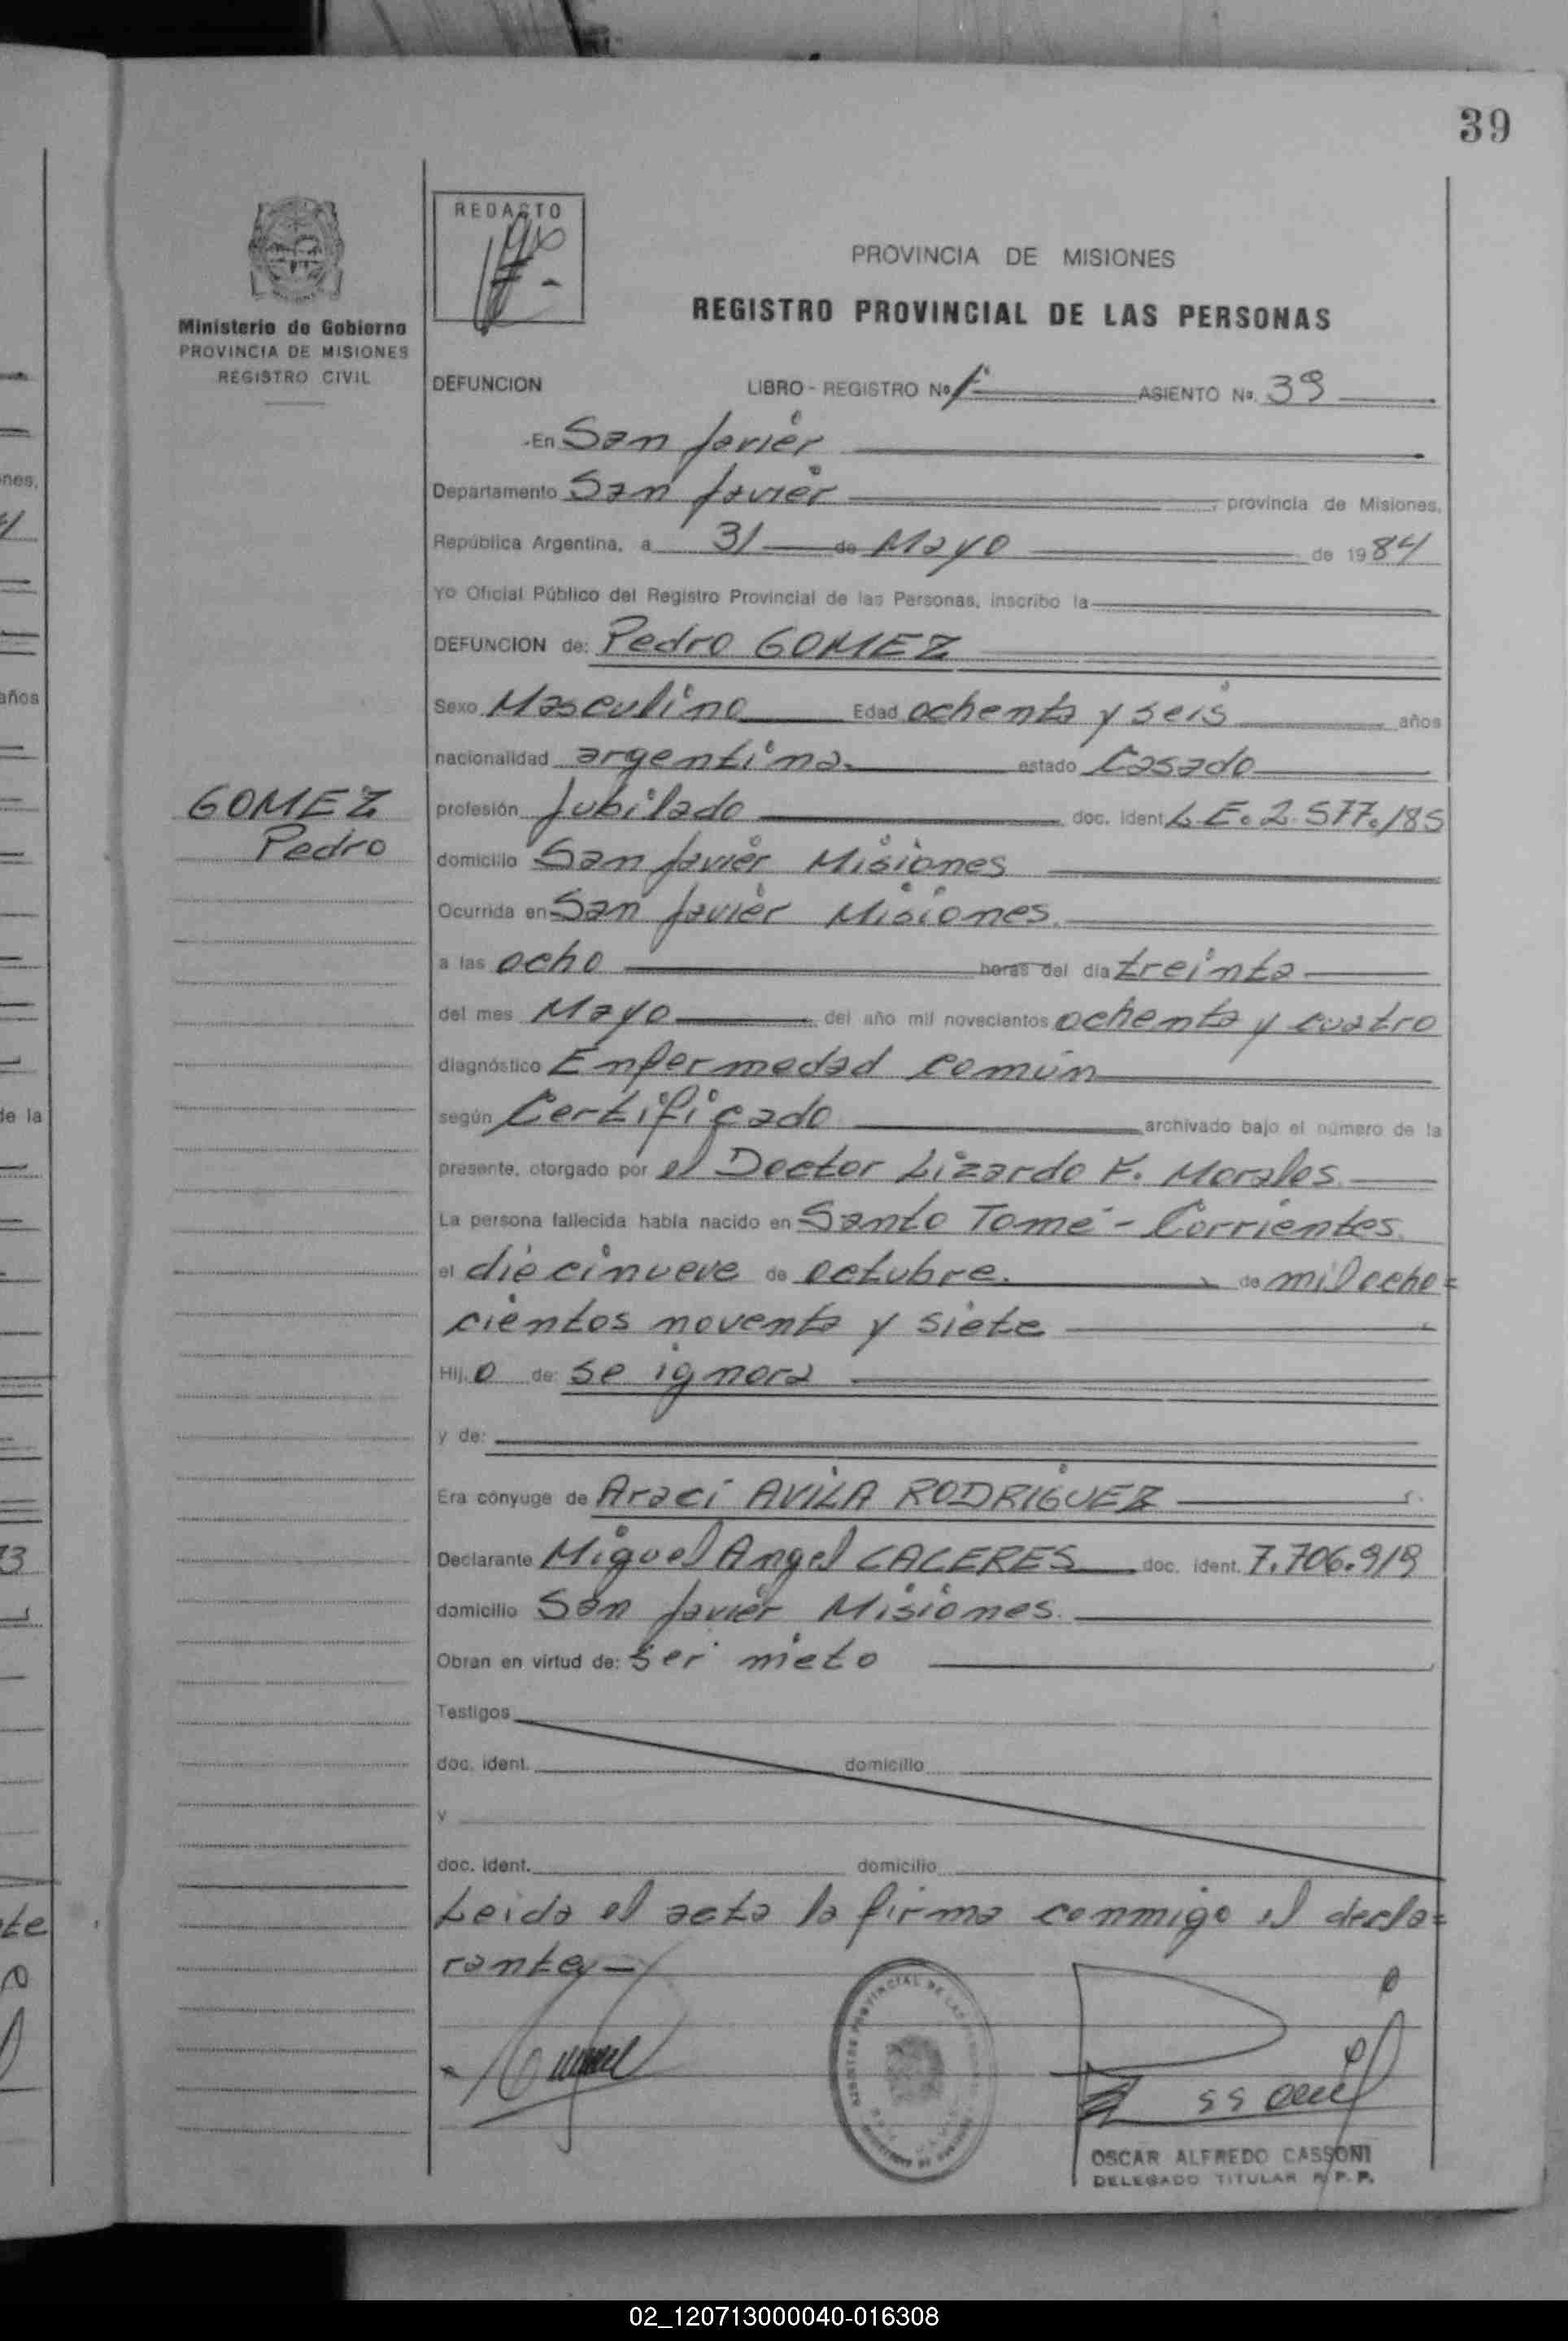 39
REDACTO
PROVINCIA DE MISIONES
REGISTRO PROVINCIAL DE LAS PERSONAS
Ministerio de Gobierno
PROVINCIA DE MISIONES
REGISTRO CIVIL
DEFUNCION LIBRO - REGISTRO Nº 1 ASIENTO Nº. 39
En San Javier
Departamento San Javier provincia de Misiones,
República Argentina, a 31 de Mayo de 1984
Yo Oficial Público del Registro Provincial de las Personas, inscribo la
DEFUNCION de: Pedro GOMEZ
Sexo Masculino Edad ochenta y seis años
nacionalidad argentina. estado Casado
GOMEZ
Pedro
profesión Jubilado doc. ident. L.E. 2.577.185
domicilio San Javier Misiones
Ocurrida en San Javier Misiones.
a las ocho horas del día treinta
del mes Mayo del año mil novecientos ochenta y cuatro
diagnóstico Enfermedad común
según Certificado archivado bajo el número de la
presente, otorgado por el Doctor Lizardo F. Morales.
La persona fallecida había nacido en Santo Tomé - Corrientes.
el diecinueve de octubre. de mil ocho=
cientos noventa y siete
Hij o de: se ignora
y de:
Era cónyuge de Araci AVILA RODRIGUEZ
Declarante Miguel Angel CACERES doc. ident. 7.706.919
domicilio San Javier Misiones.
Obran en virtud de: ser nieto
Testigos
doc. ident. domicilio
y
doc. ident. domicilio
Leida el acta la firma conmigo el decla=
rante
OSCAR ALFREDO CASSONI
DELEGADO TITULAR R.P.P.
nes,
años
de la
02_120713000040-016308